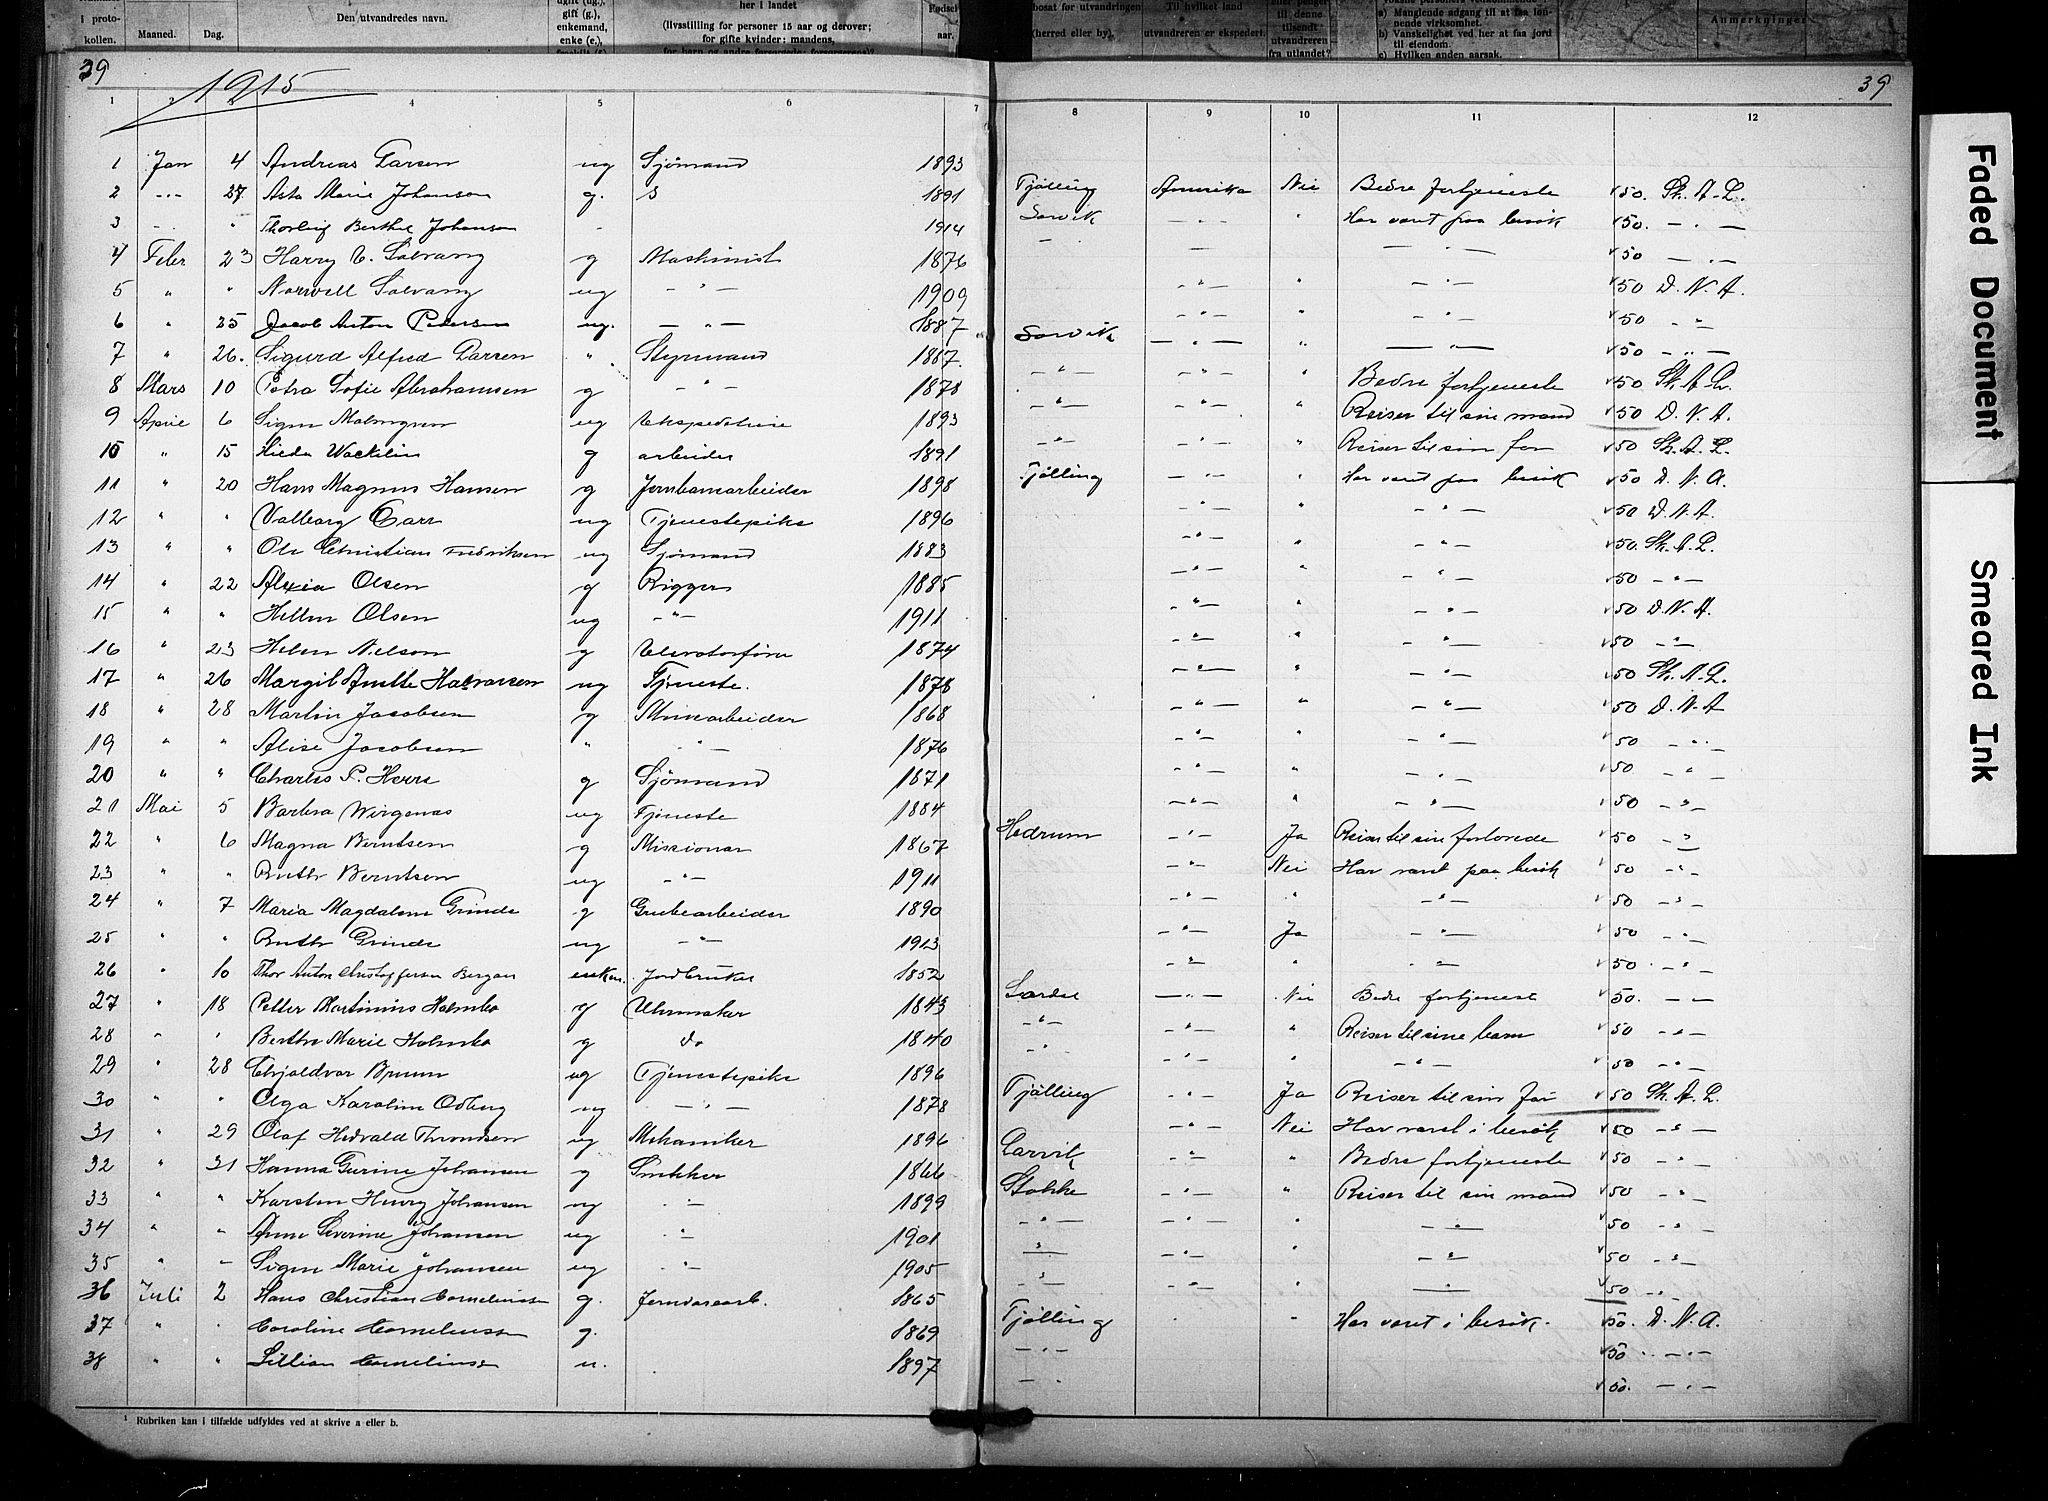 i proto-
kollen.
Maaned.
Dag.
Den utvandredes navn.
gift (g.),
enkemand,
enke (e.),
her i landet
(livsstilling for personer 15 aar og derover;
for gifte kvinder: mandens,
Fødsels-
aar.
bosat før utvandringen
(herred eller by).
Til hvilket land
utvandreren er ekspedert.
til denne
tilsendt
utvandreren
fra utlandet?
a) Manglende adgang til at faa løn-
nende virksomhet.
b) Vanskelighet ved her at faa jord
til eiendom.
c) Hvilken anden aarsak.
Anmerkninger
39 1915 39
1 2 4 5 6 7 8 9 10 11 12
1 Jan 4 Andreas Larsen ug Sjömand 1893 Tjölling Amerika Nei Bedre fortjeneste 50. Sk. A. L.
2 -"- 27 Asta Marie Johanson g. 1891 Larvik -"- " Har været paa besök 50. - " -
3 - " Thorleif Berthel Johanson - 1914 - -"- " -"- 50 - " -
4 Febr 23 Harry C. Solvang g Maskinist 1876 -"- " -"- 50 D. N. A.
5 " " Norwell Solvang ug -"- 1909 -"- " -"- 50 - " -
6 " 25 Jacob Anton Pedersen ug. -"- 1887 Larvik -"- " -"- 50 - " -
7 " 26. Sigurd Alfred Larsen " Styrmand 1887. -"- -"- " Bedre fortjeneste 50 Sk. A. L.
8 Mars 10 Petra Sofie Abrahamsen g -"- 1878 -"- -"- " Reiser til sin mand 50 D. N. A.
9 April 6 Signe Malmgren ug Ekspeditrise 1893 -"- -"- " Reiser til sin far 50 Sk. A. L.
10 " 15 Wacklin g arbeider 1891 Tjölling -"- " Har været paa besök 50 D. N. A.
11 " 20 Hans Magnus Hansen g Jernbanearbeider 1898 -"- " -"- 50 D. N. A.
12 " " Valborg Carr ug Tjenestepike 1896 -"- " -"- 50. Sk. A. L.
13 " " Ole Christian Fredriksen ug Sjömand 1883 -"- " -"- 50 -"-
14 " 22 Alexia Olsen g Rigger 1885 -"- " -"- 50 D. N. A.
15 " " Hellen Olsen ug -"- 1911 -"- " -"- 50 -"-
16 " 23 Helen Nielson g Elevatorförer 1874 -"- " -"- 50 Sk. A. L.
17 " 26 Margit Anette Halvorsen ug Tjeneste. 1878 -"- " -"- 50 D. N. A
18 " 28 Martin Jacobsen g Minearbeider 1868 -"- " -"- 50 -"-
19 " " Alise Jacobsen " -"- 1876 -"- " -"- 50 -"-
20 " " Charles P. g Sjömand 1871 -"- " -"- 50 -"-
21 Mai 5 Barbra Wirgenas ug Tjeneste 1884 Hedrum -"- Ja Reiser til sin forlovede 50 -"-
22 " 6 Magna Berntsen g Missionær 1867 -"- Nei Har været paa besök 50 -"-
23 " " Ruth Berntsen ug -"- 1911 -"- " -"- 50 -"-
24 " 7 Maria Magdalene Grinde g Grubearbeider 1890 -"- Ja -"- 50 -"-
25 " " Ruth Grinde ug -"- 1913 -"- " -"- 50 -"-
26 " 10 Thor Anton Christoffersen Bergan enkem. Jordbruker 1852 Lardal -"- Nei Bedre fortjeneste 50. -"-
27 " 18 Petter Martinius Holmbo g Uhrmaker 1843 -"- -"- " Reiser til sine barn 50 -"-
28 " " Berthe Marie Holmbo g do 1840 -"- -"- " -"- 50 -"-
29 " 28 Bruun ug Tjenestepike 1896 Tjölling -"- Ja Reiser til sin far 50 Sk. A. L.
30 " " Olga Karoline Odberg ug -"- 1878 -"- Nei Har været i besök 50 -"-
31 " 29 Olaf Hedvald Throndsen ug Mekaniker 1896 Larvik -"- " Bedre fortjeneste 50 -"-
32 " 31 Hanna Gurine Johansen g Snekker 1866 Stokke -"- " Reiser til sin mand 50 -"-
33 " " Karsten Henry Johansen ug -"- 1899 -"- -"- " -"- 50 -"-
34 " " Anne Severine Johansen ug -"- 1901 -"- -"- " -"- 50 -"-
35 " " Signe Marie Johansen ug -"- 1905 -"- -"- " -"- 50 -"-
36 Juli 2 Hans Christian Corneliussen g. Jernvarearb. 1865 Tjölling " " Har været i besök. 50. D. N. A.
37 " " Caroline Corneliussen g. 1869 -"- 50 -"-
38 " " Lillian Corneliussen u. 1897 -"- 50. -"-
¹ Rubriken kan i tilfælde udfyldes ved at skrive a eller b.
Faded Document
Smeared Ink